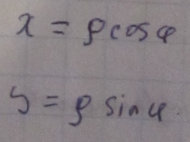 x = ρ cos φ
y = ρ sin φ